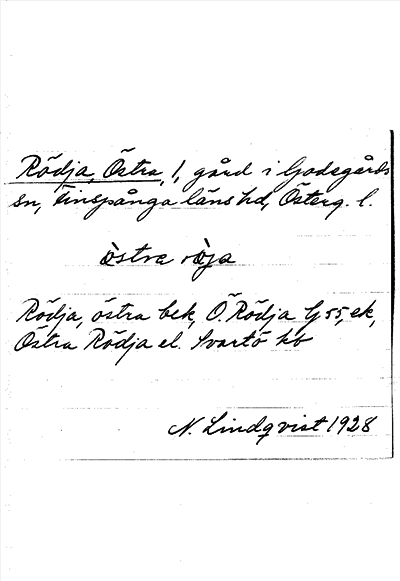 Rödja, Östra, 1, gård i Godegårds
sn, Finspånga läns hd, Österg. l.
òstra rò̀ja
Rödja, östra bek, Ö. Rödja G 55, ek,
Östra Rödja el. Svartö kb
N. Lindqvist 1928